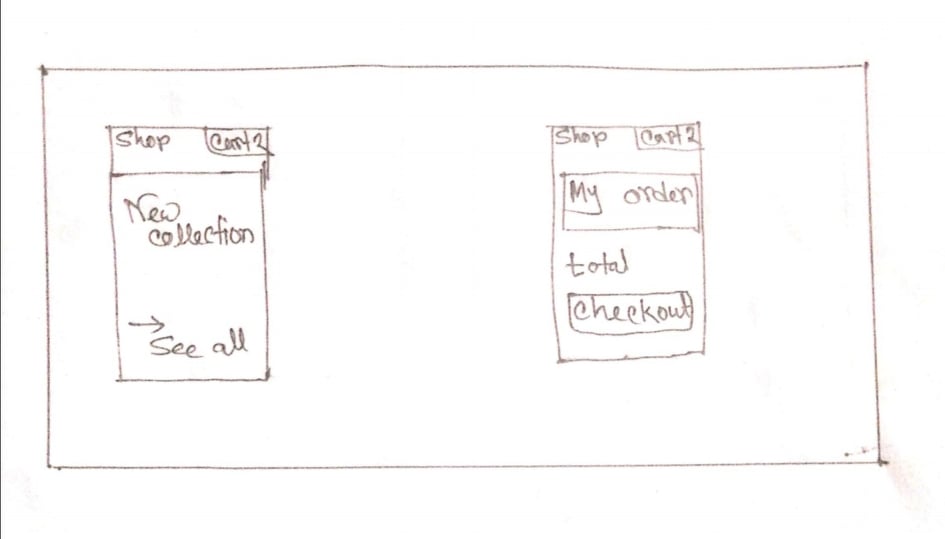 Shop Cart 2
New
collection
→
See all
Shop Cart 2
My order
total
Checkout